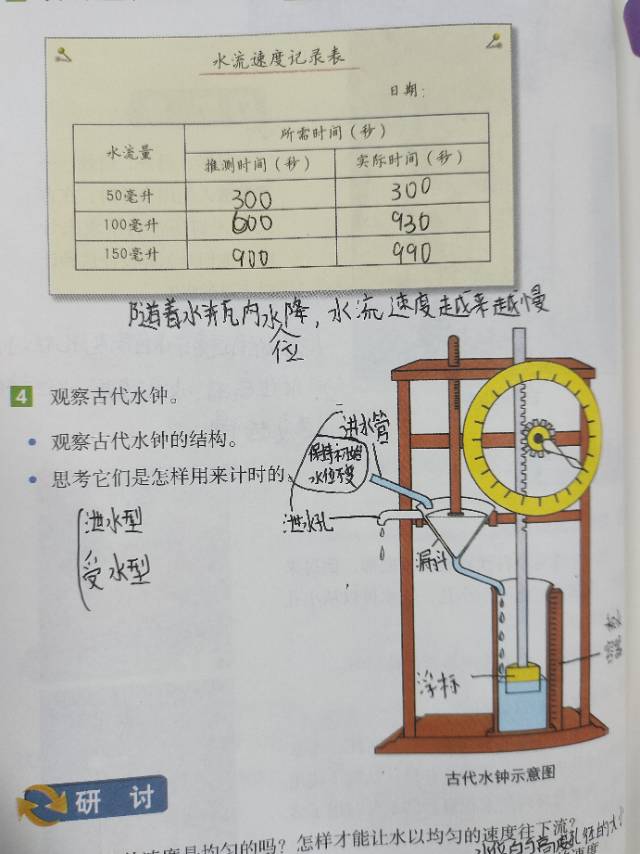 水流速度记录表
日期:
水流量 所需时间（秒）
推测时间（秒） 实际时间（秒）
50毫升 300 300
100毫升 600 930
150毫升 900 990
随着水井瓦内水位降，水流速度越来越慢
4 观察古代水钟。
• 观察古代水钟的结构。
进水管
保持
水位不变
• 思考它们是怎样用来计时的、
泄水型
泄水孔
受水型
漏斗
浮标
古代水钟示意图
研讨
速度是均匀的吗？怎样才能让水以均匀的速度往下流？